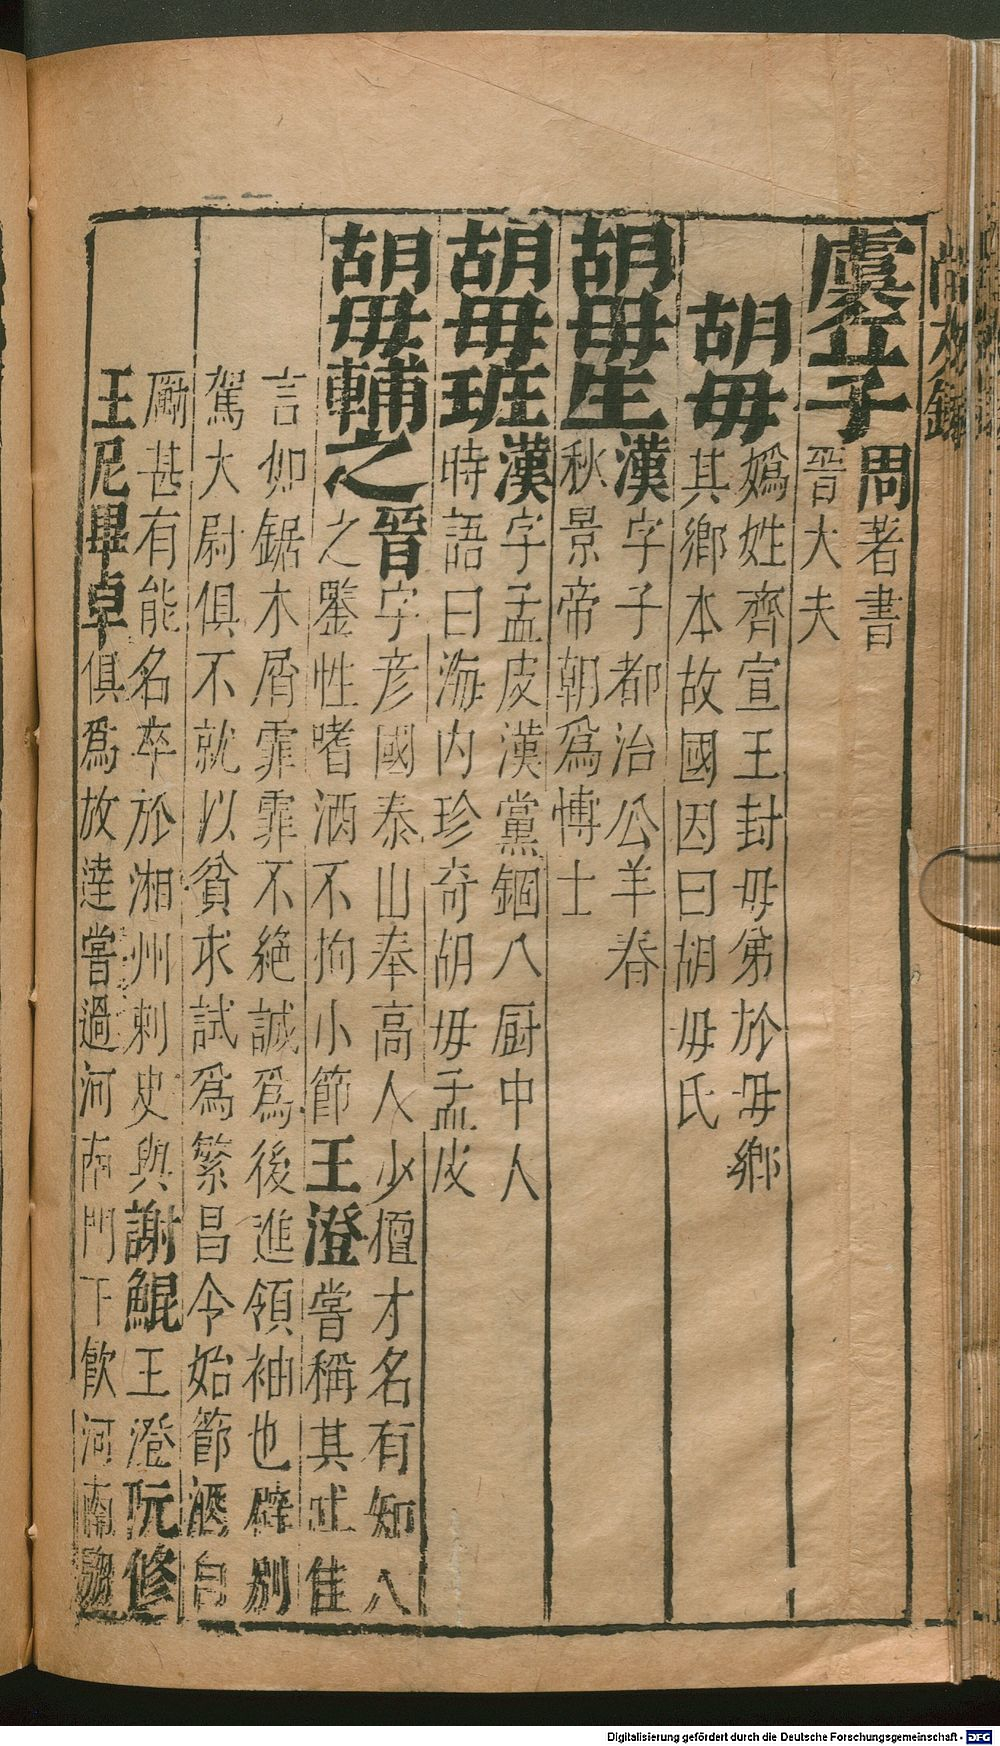 虞丘子周著書
晉大夫
胡毋嬀姓齊宣王封毋弟於毋鄉
其鄉本故國因曰胡毋氏
胡毋生漢字子都治公羊春
秋景帝朝爲博士
胡毋班漢字孟皮漢黨錮八厨中人
時語曰海内珍奇胡毋孟皮
胡毋輔之晉字彦國泰山奉高人少擅才名有知人
之鑒性嗜酒不拘小節王澄嘗稱其
佳
言如鋸木屑霏霏不絶誠爲後進領袖也辟别
駕大尉俱不就以貧求試爲繁昌令始節酒自
厲甚有能名卒於湘州刺史與謝鯤王澄阮修
王尼畢卓俱爲放達嘗過河南門下飲河南騶
Digitalisierung gefördert durch die Deutsche Forschungsgemeinschaft - DFG